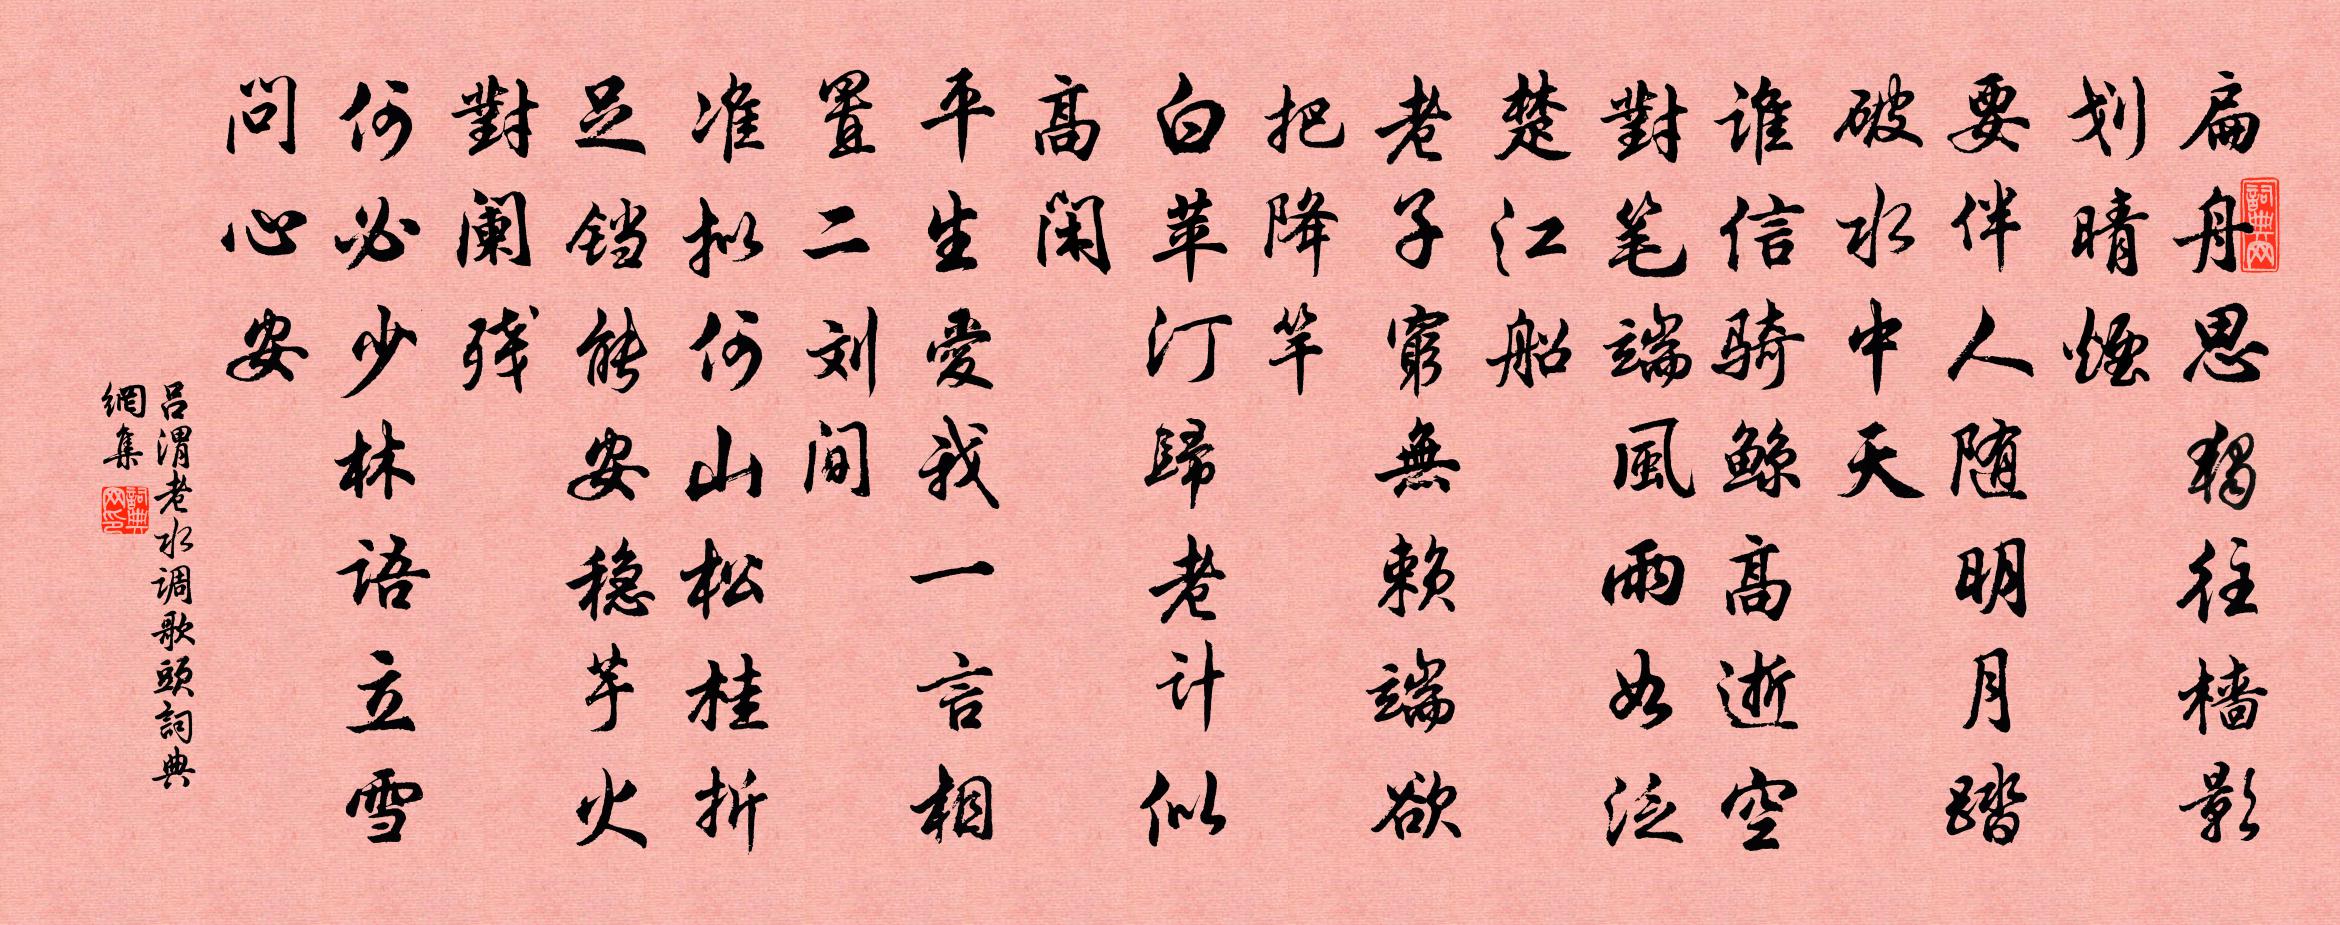 扁舟思獨往樯影
划晴煙
要伴人随明月踏
破水中天
谁信骑鲸高逝空
對笔端風雨如泛
楚江船
老子窮無赖端欲
把降竿
白苹汀歸老计似
高闲
平生愛我一言相
置二刘间
准拟何山松桂折
足铛能安稳芋火
對阑残
何必少林语立雪
问心安
吕渭老水调歌頭詞典
網集
詞典网
詞典网印